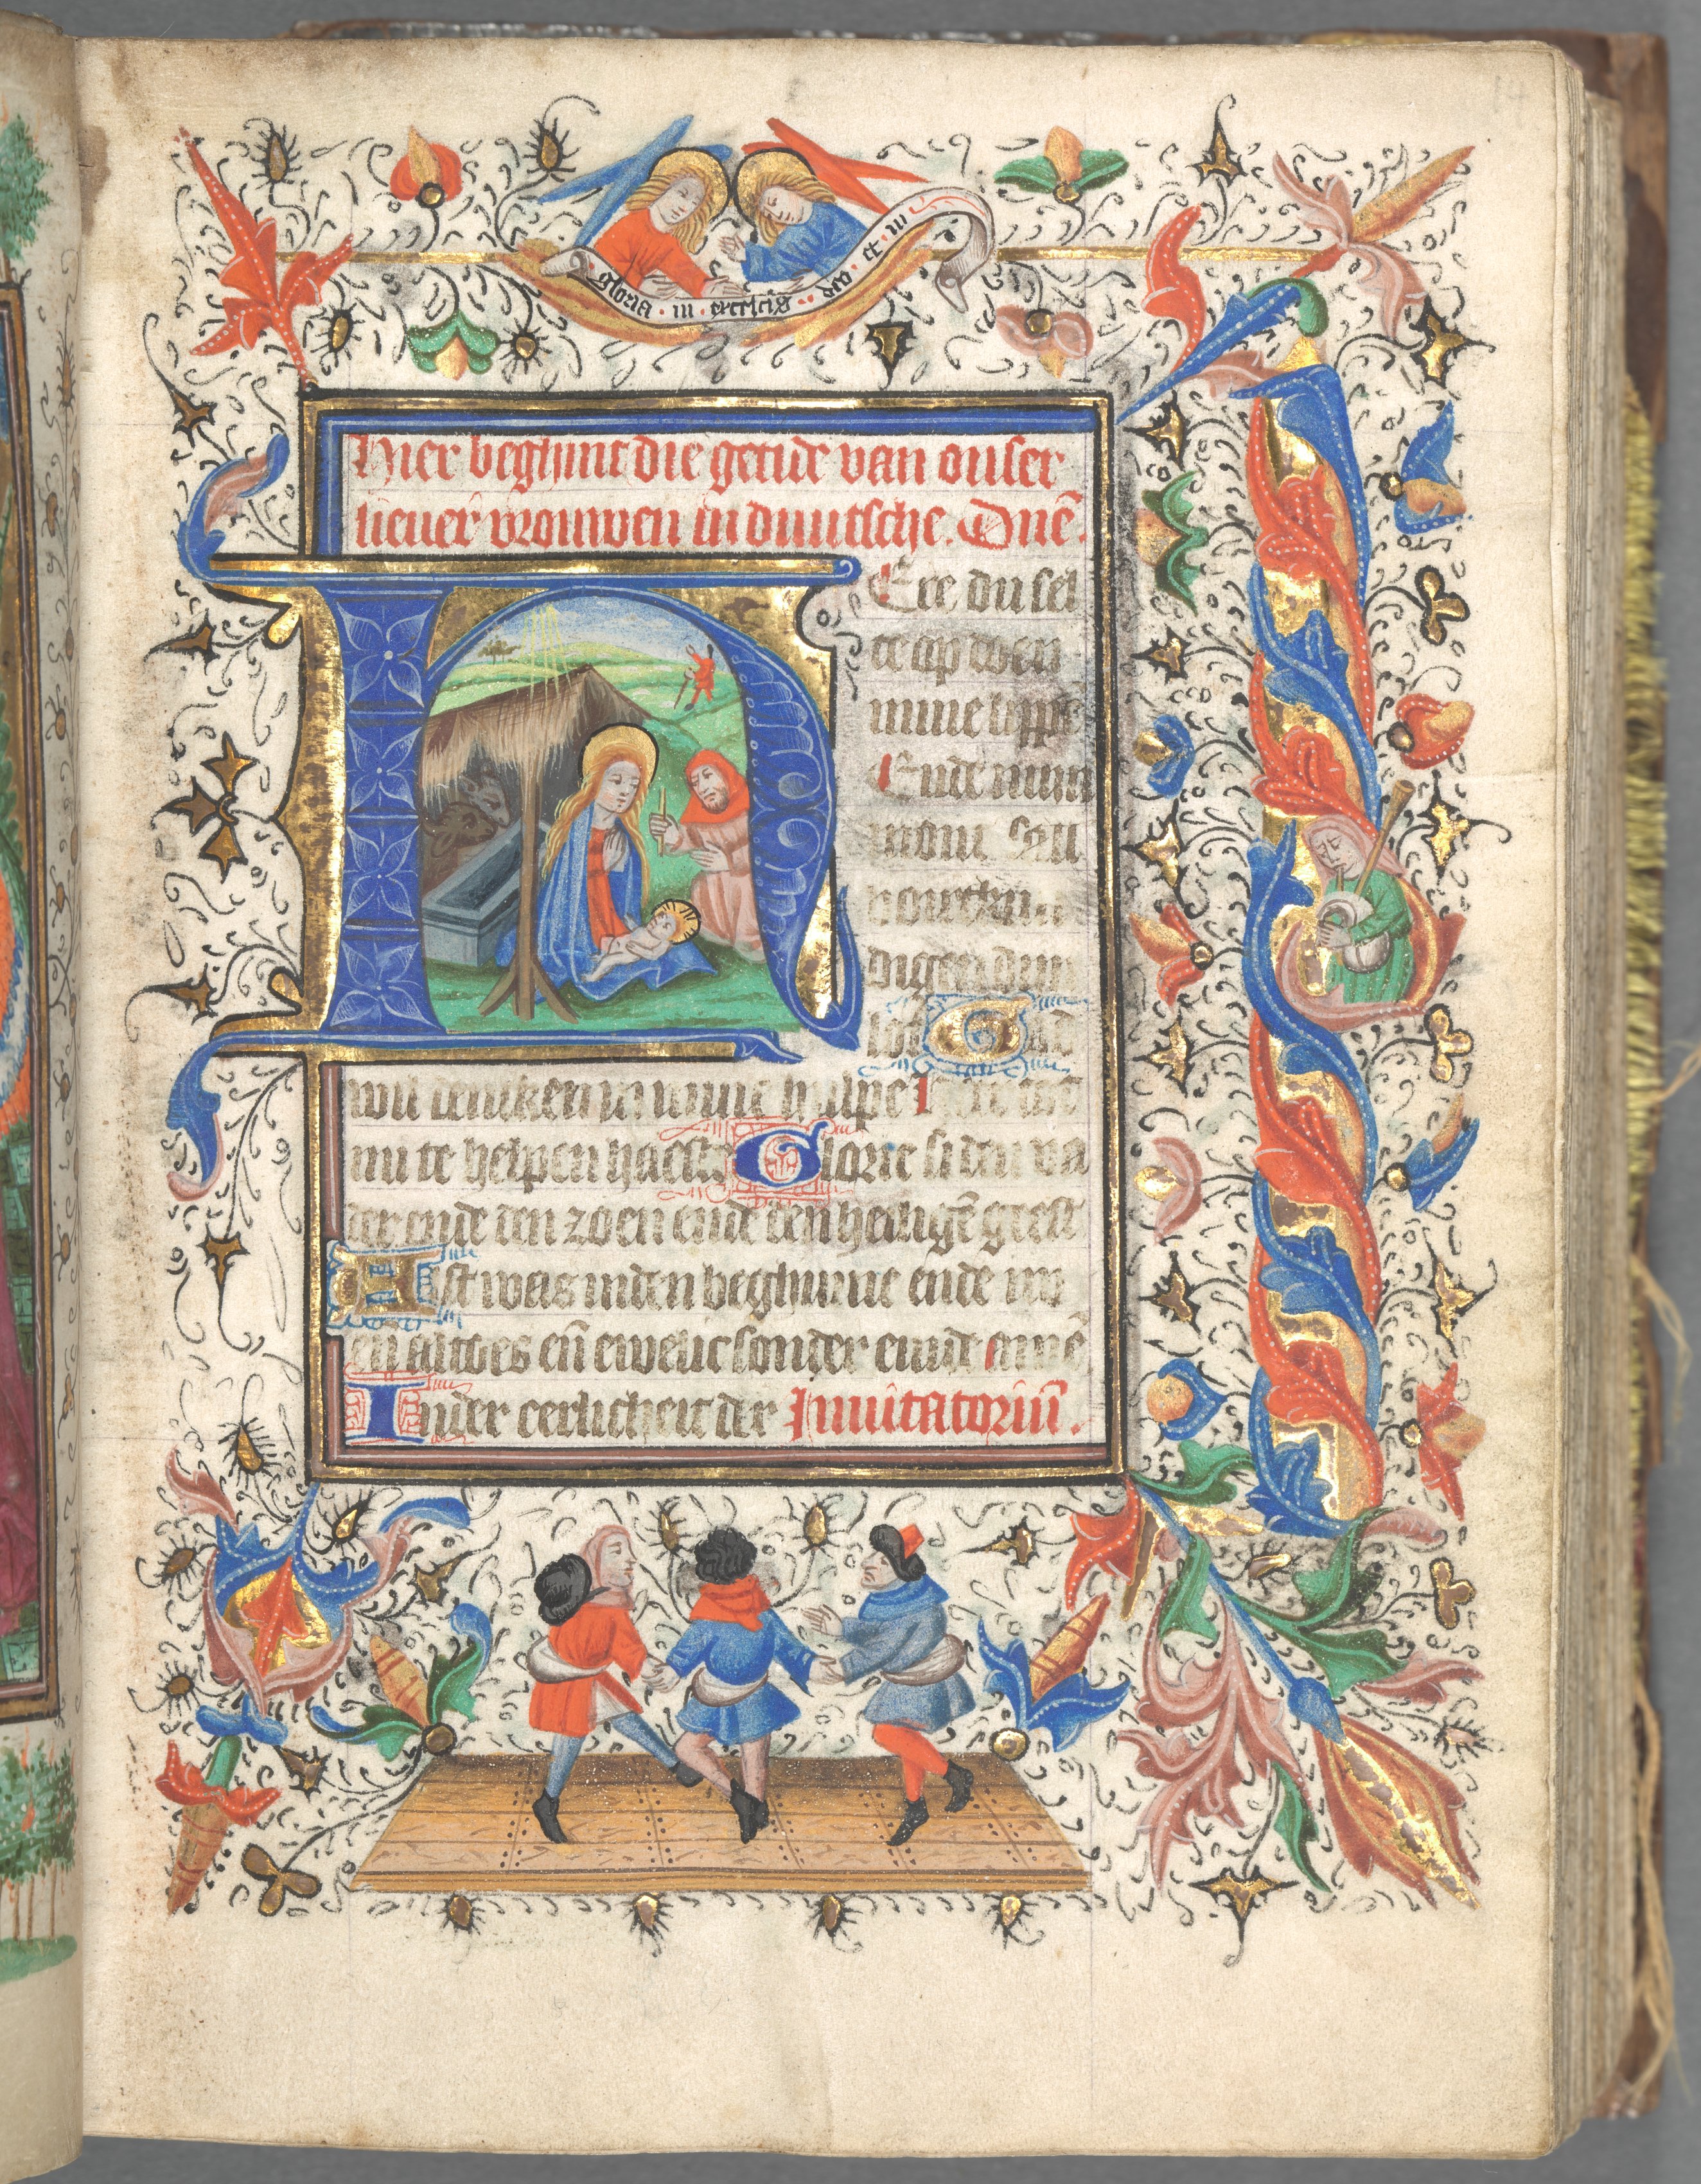 gloria · in · excelcis · deo · et · in
Hier beghint die getide van onser
liever vrouwen in duutsche. Dnē.
HEre du sel
te op doen
mine lippē
Ende mijn
mont sal
vorthin
digen dinē
lof God
wil denken in mine hulpe Here
mi te helpen haeste Glorie si den va
der ende den zoen ende den heiligē giest
Alst was inden beghinne ende nv
eñ altoes eñ ewelic sonder einde amē
Inder eerlicheit der Invitatoriū.